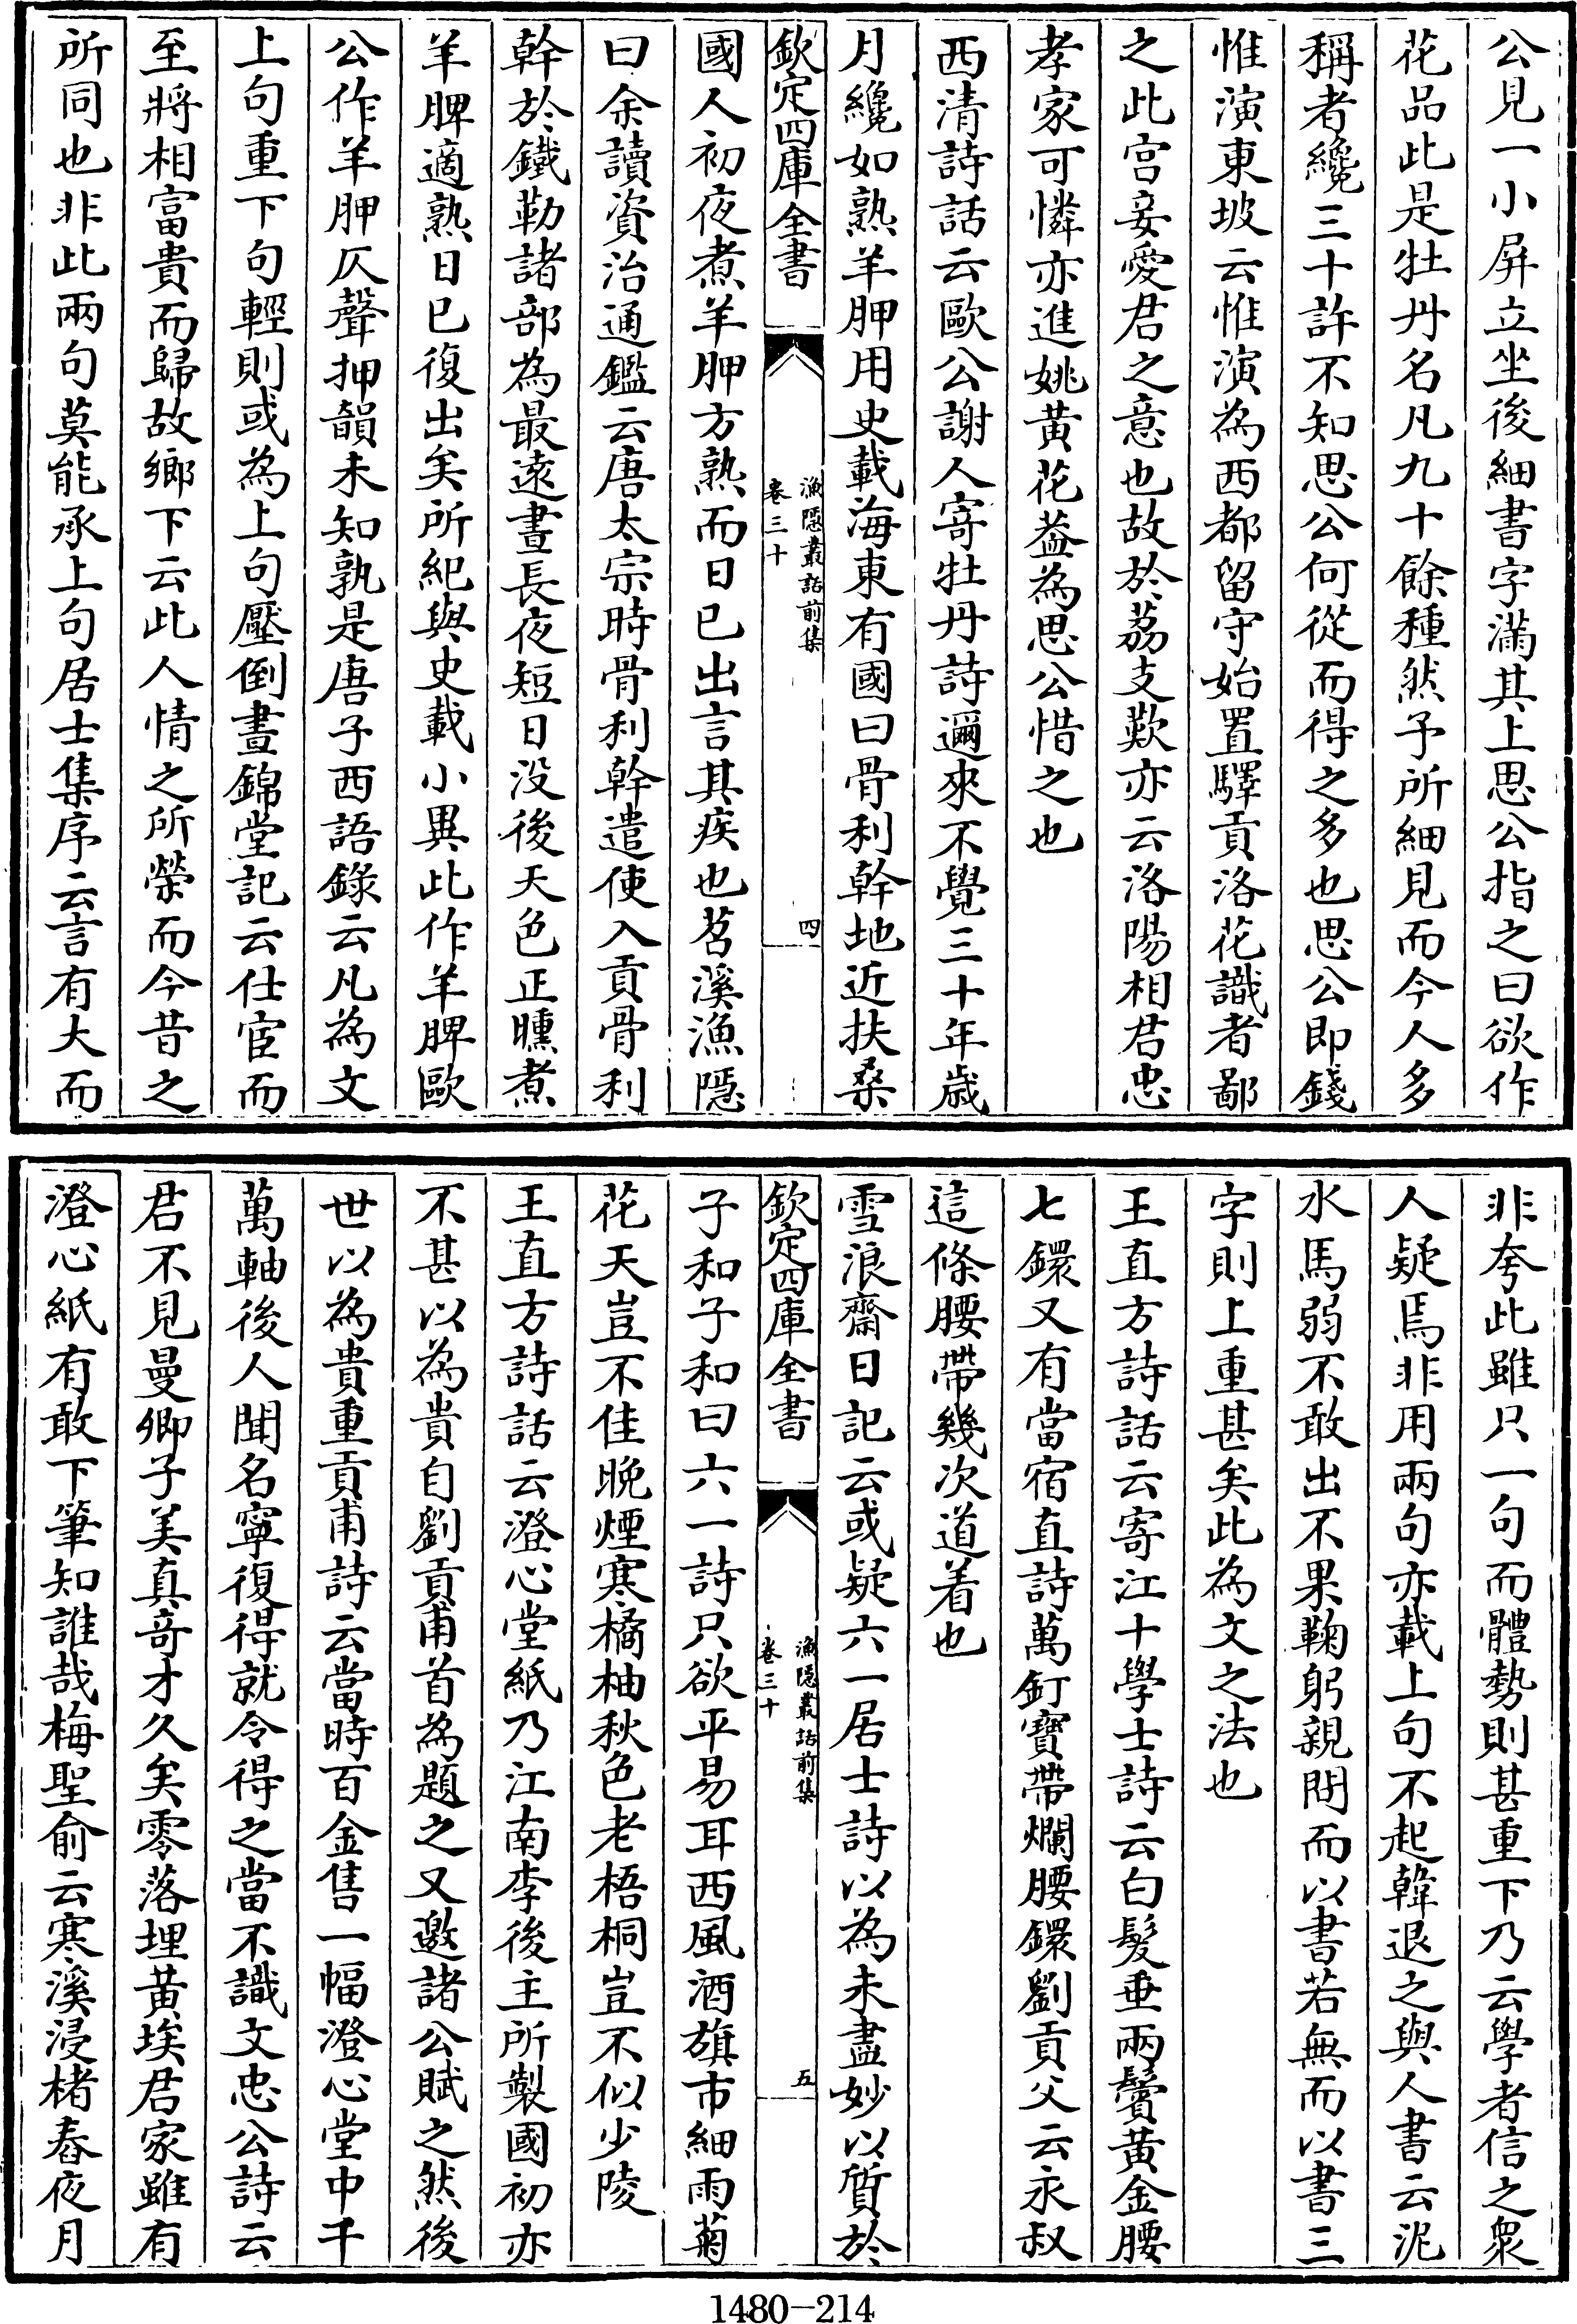 公見一小屏立坐後細書字滿其上思公指之曰欲作
花品此是牡丹名凡九十餘種然予所細見而今人多
稱者纔三十許不知思公何從而得之多也思公即錢
惟演東坡云惟演為西都留守始置驛貢洛花識者鄙
之此宫妾愛君之意也故於荔支歎亦云洛陽相君忠
孝家可憐亦進姚黄花葢為思公惜之也
西清詩話云歐公謝人寄牡丹詩邇來不覺三十年歲
月纔如熟羊胛用史載海東有國曰骨利幹地近扶桑
欽定四庫全書
漁隱叢話前集
卷三十
四
國人初夜煮羊胛方熟而日已出言其疾也苕溪漁隱
曰余讀資治通鑑云唐太宗時骨利幹遣使入貢骨利
幹於鐵勒諸部為最遠晝長夜短日没後天色正曛煮
羊脾適熟日已復出矣所紀與史載小異此作羊脾歐
公作羊胛仄聲押韻未知孰是唐子西語錄云凡為文
上句重下句輕則或為上句壓倒晝錦堂記云仕宦而
至將相富貴而歸故鄉下云此人情之所榮而今昔之
所同也非此兩句莫能承上句居士集序云言有大而
非夸此雖只一句而體勢則甚重下乃云學者信之衆
人疑焉非用兩句亦載上句不起韓退之與人書云泥
水馬弱不敢出不果鞠躬親問而以書若無而以書三
字則上重甚矣此為文之法也
王直方詩話云寄江十學士詩云白髮垂兩鬢黄金腰
七鐶又有當宿直詩萬釘寶帶爛腰鐶劉貢父云永叔
這條腰帶幾次道着也
雪浪齋日記云或疑六一居士詩以為未盡妙以質於
欽定四庫全書
漁隱叢話前集
卷三十
五
子和子和曰六一詩只欲平易耳西風酒旗市細雨菊
花天豈不佳晚煙寒橘柚秋色老梧桐豈不似少陵
王直方詩話云澄心堂紙乃江南李後主所製國初亦
不甚以為貴自劉貢甫首為題之又邀諸公賦之然後
世以為貴重貢甫詩云當時百金售一幅澄心堂中千
萬軸後人聞名寧復得就令得之當不識文忠公詩云
君不見曼卿子美真竒才久矣零落埋黄埃君家雖有
澄心紙有敢下筆知誰哉梅聖俞云寒溪浸楮舂夜月
1480-214